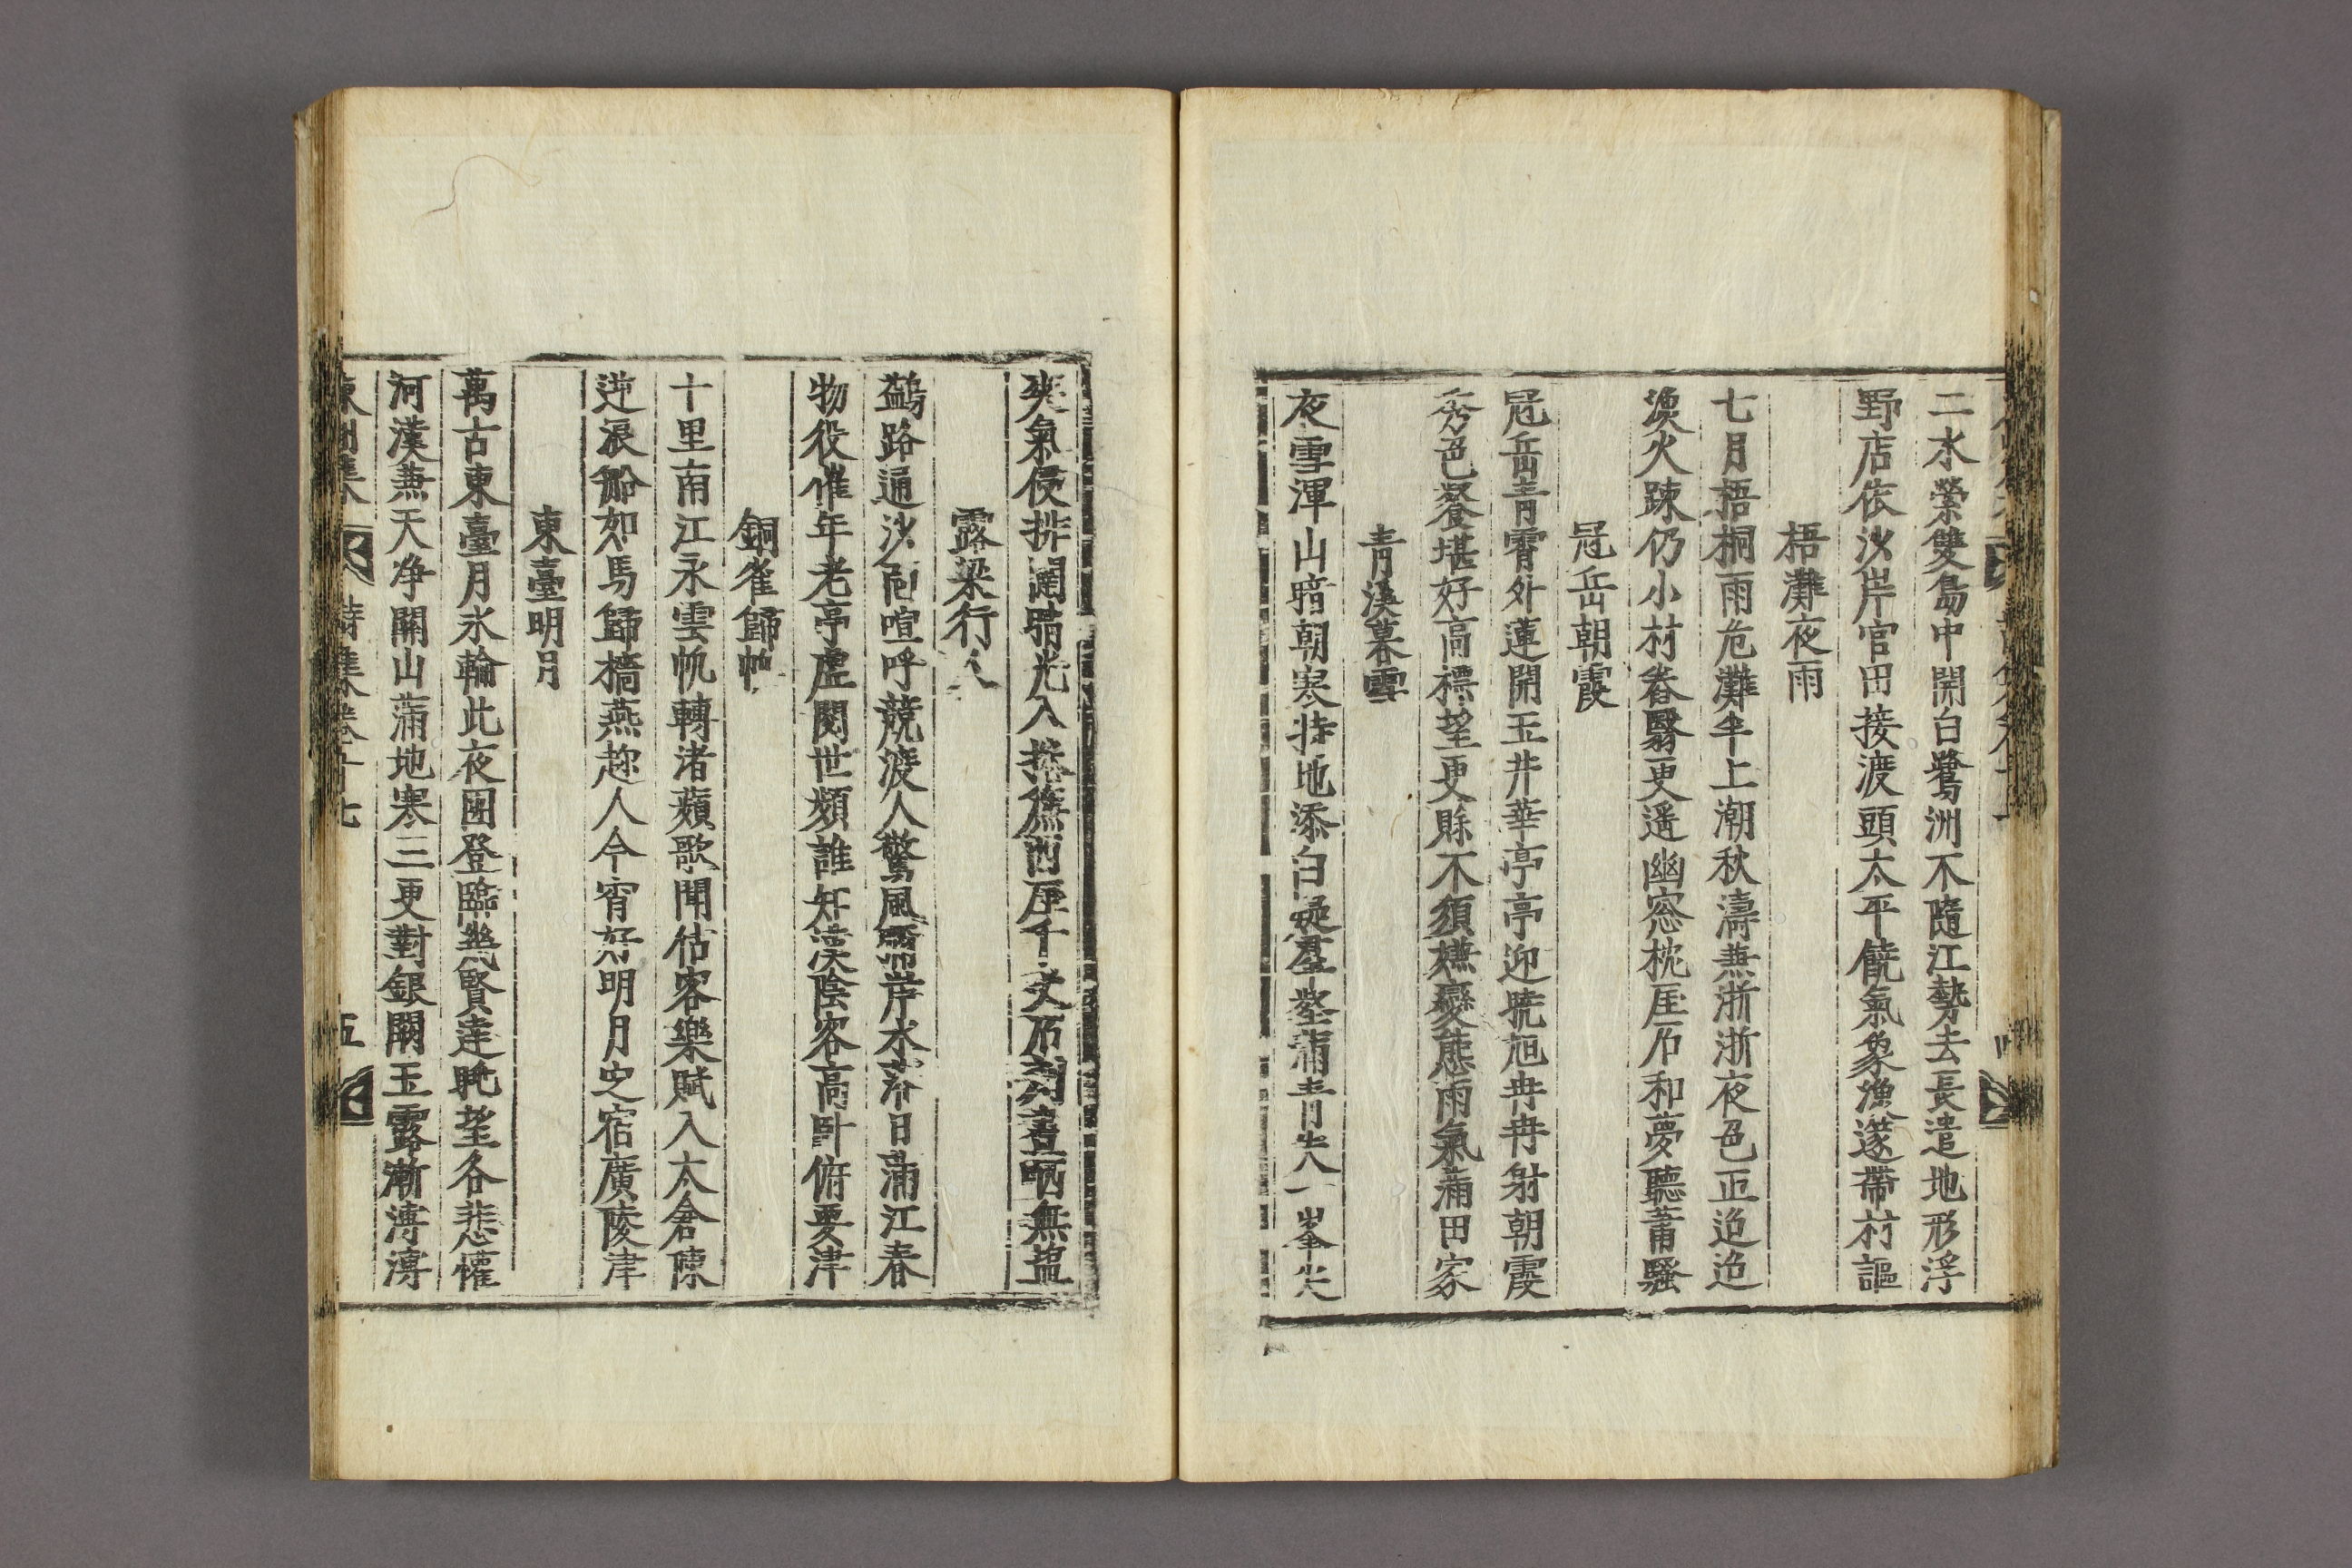 二水縈雙島中開白鷺洲不隨江勢去長遣地形浮
野店依沙岸官田接渡頭太平饒氣象漁遂帶村謳
梧灘夜雨
七月梧桐雨危灘半上潮秋濤兼浙浙夜色正迢迢
漁火踈仍小村舂翳更遙幽窓枕厓石和夢聽蕭騷
冠岳朝霞
冠岳靑霄外蓮開玉井華亭亭迎曉旭冉冉射朝霞
秀色餐堪好高標望更賖不須嫌變態雨氣滿田家
靑溪暮雪
夜雪渾山暗朝寒特地添白凝羣壑滿靑失一峯尖
爽氣侵排闥晴光入捲簾西厓千丈石刻畫哂無鹽
露梁行人
鷁路通沙
喧呼競渡人驚風
岸水落日滿江春
物役催年老亭虛閱世頻誰知漢陰客高臥俯要津
銅雀歸帆
十里南江永雲帆轉渚蘋歌聞估客樂賦入太倉陳
逆浪船如馬歸檣燕趂人今宵好明月定宿廣陵津
東臺明月
萬古東臺月氷輪此夜團登臨幾賢達眺望各悲懽
河漢兼天淨關山滿地寒三更對銀闕玉露漸漙漙
東州集 詩集卷之七 五